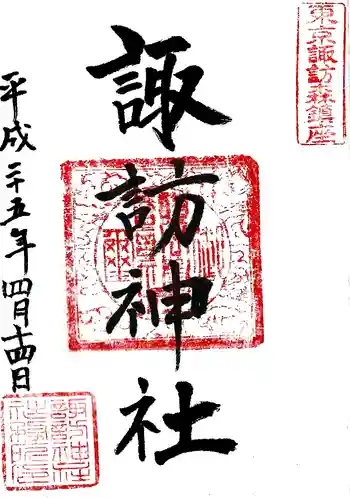 東京諏訪森鎮座
諏訪神社
平成二十五年四月十四日